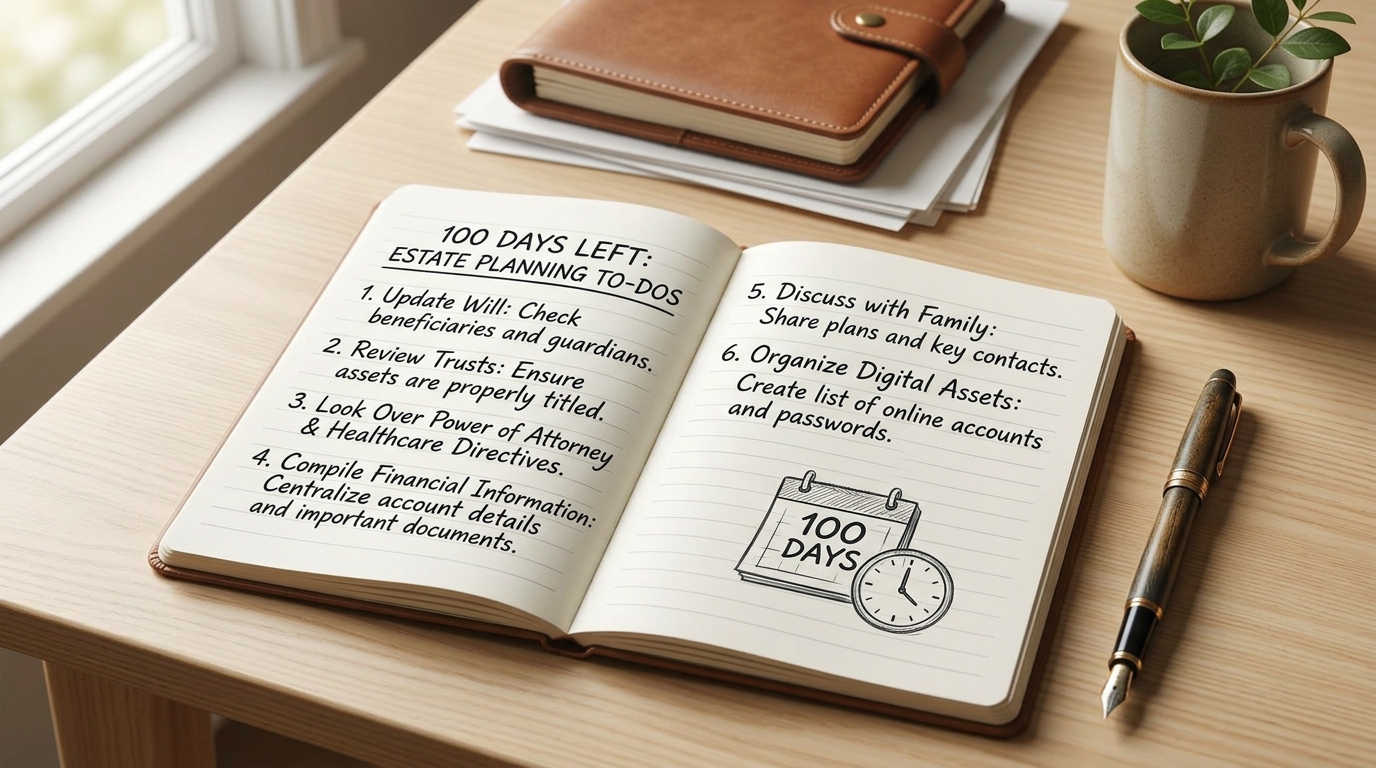 100 DAYS LEFT:
ESTATE PLANNING TO-DOS
1. Update Will: Check
beneficiaries and guardians.
2. Review Trusts: Ensure
assets are properly titled.
3. Look Over Power of Attorney
& Healthcare Directives.
4. Compile Financial Information:
Centralize account details
and important documents.
5. Discuss with Family:
Share plans and key contacts.
6. Organize Digital Assets:
Create list of online accounts
and passwords.
100
DAYS